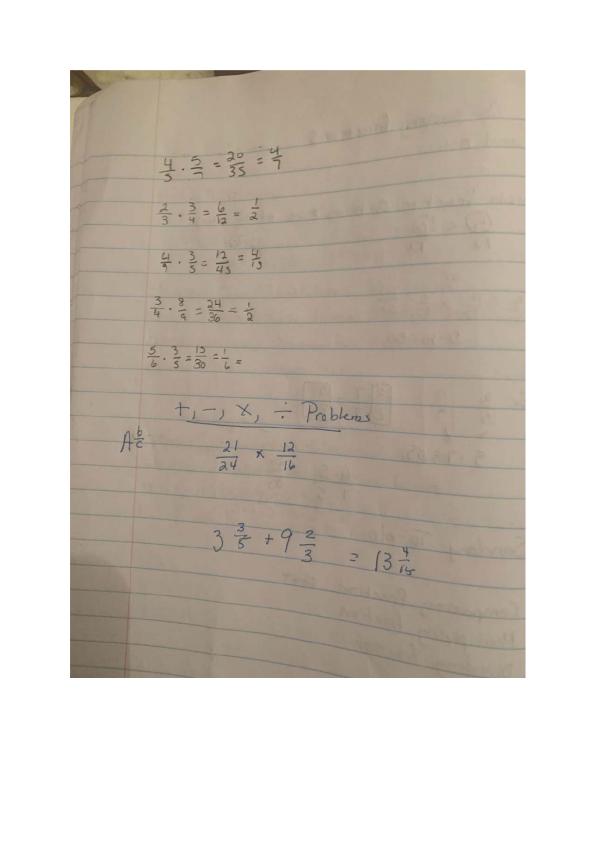 4/5 · 5/7 = 20/35 = 4/7
2/3 · 3/4 = 6/12 = 1/2
4/9 · 3/5 = 12/45 = 4/15
3/4 · 8/9 = 24/36 = 1/2
5/6 · 3/5 = 15/30 = 1/6 =
+, -, ×, ÷ Problems
A b/c
21/24 × 12/16
3 3/5 + 9 2/3 = 13 4/15